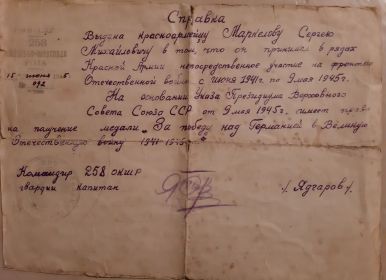 Справка
258
Выдана красноармейцу Маркелову Сергею
Михайловичу в том, что он принимал в рядах
15 июня
Красной Армии непосредственное участие на фронтах
№ 092
Отечественной войны с июня 1941г. по 9 мая 1945г.
На основании Указа Президиума Верховного
Совета Союза ССР от 9 мая 1945г. имеет право
на получение медали „За победу над Германией в Великую
Отечественную войну 1941-1945
Командир 258 ОКШР
гвардии капитан /Ядгаров/.